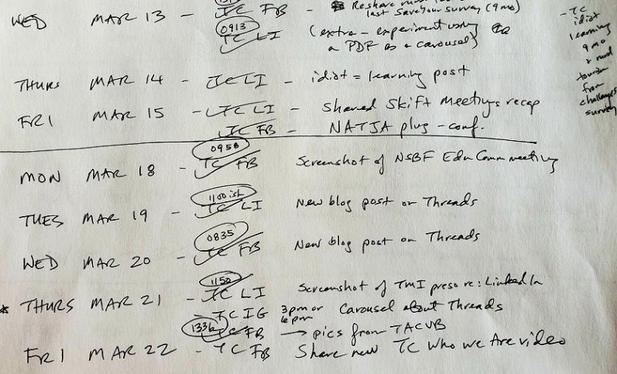 WED MAR 13 - TC FB - Reshare
last Save Your Survey (9mo)
0913
TC LI (extra - experiment using
a PDF as a carousel)
- TC
idiot
learning
9mo
tourism
from
challenges
survey
THURS MAR 14 - TC LI - idiot = learning post
FRI MAR 15 - TC LI - Shared Skift Meetings recap
TC FB - NATJA plug - conf.
0958
MON MAR 18 - TC FB Screenshot of NSBF Edu Comm meeting
1100ish
TUES MAR 19 - TC LI New blog post on Threads
0835
WED MAR 20 - TC FB New blog post on Threads
1150
* THURS MAR 21 - TC LI Screenshot of TMI preso re: LinkedIn
- TC IG 3pm or 6pm Carousel about Threads
1336
TC FB → pics from TACVB
FRI MAR 22 - TC FB Share new TC Who We Are video